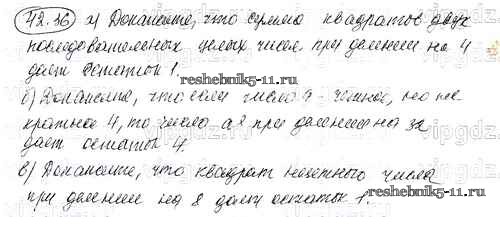 42.36 а) Докажите, что сумма квадратов двух
последовательных целых чисел при делении на 4
даёт остаток 1.
reshebnik5-11.ru
б) Докажите, что если число a чётное, но не
кратное 4, то число a² при делении на 32
даёт остаток 4
reshebnik5-11.ru
в) Докажите, что квадрат нечетного числа
при делении на 8 даёт остаток 1.